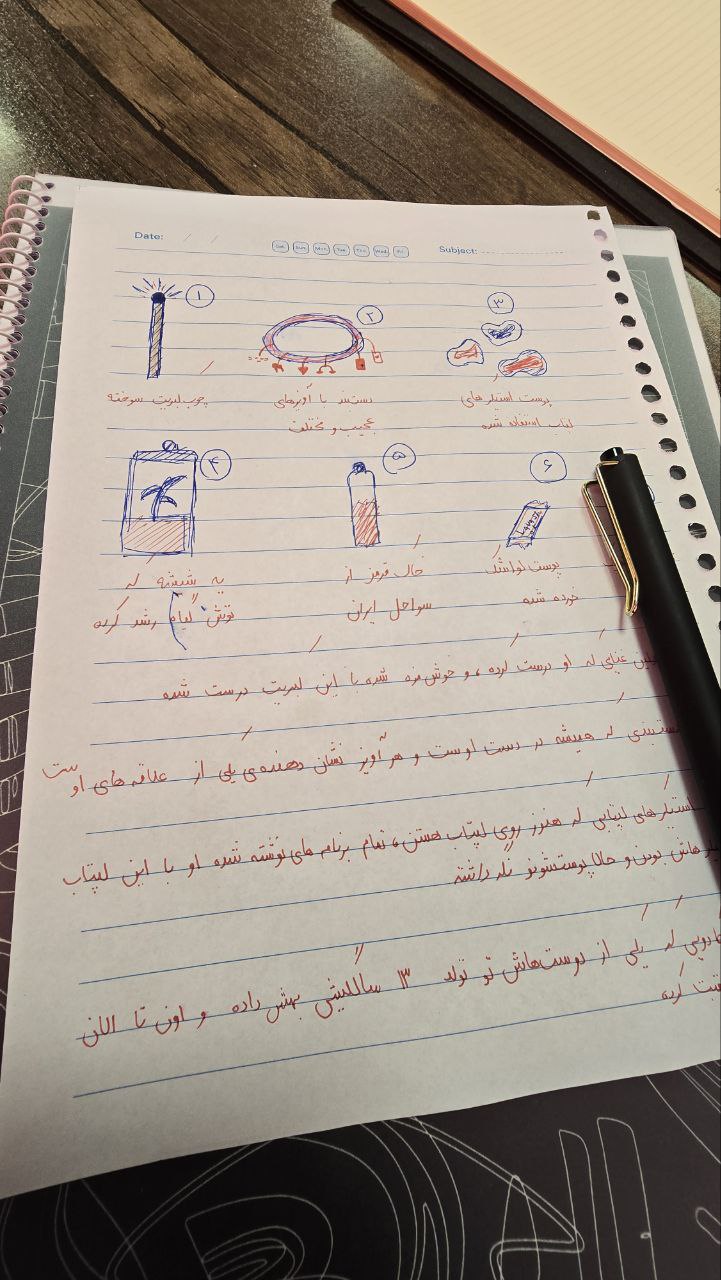 Date: / /
Sat. Sun. Mon. Tue. Thu. Wed. Fri.
Subject:
۱
۲
۳
چوب کبریت سوخته
دستبند با آویزهای
عجیب و مختلف
پوست استیکرهای
لپتاپ استفاده شده
۴
۵
۶
یه شیشه که
توش گیاه رشد کرده
خاک قرمز از
سواحل ایران
پوست لواشک
خورده شده
غذایی که او درست کرده، و خوش مزه شده با این کبریت درست شده
که همیشه در دست اوست و هر آویز نشان دهنده‌ی یکی از علاقه های اوست
استیکرهای لپتاپی که هنوز روی لپتاپ هستن، تمام برنامه های نوشته شده او با این لپتاپ
بودن و حالا پوستشونو نگه داشته
که یکی از دوست‌هاش تو تولد ۳ سالگیش بهش داده و اون تا الان
کرده